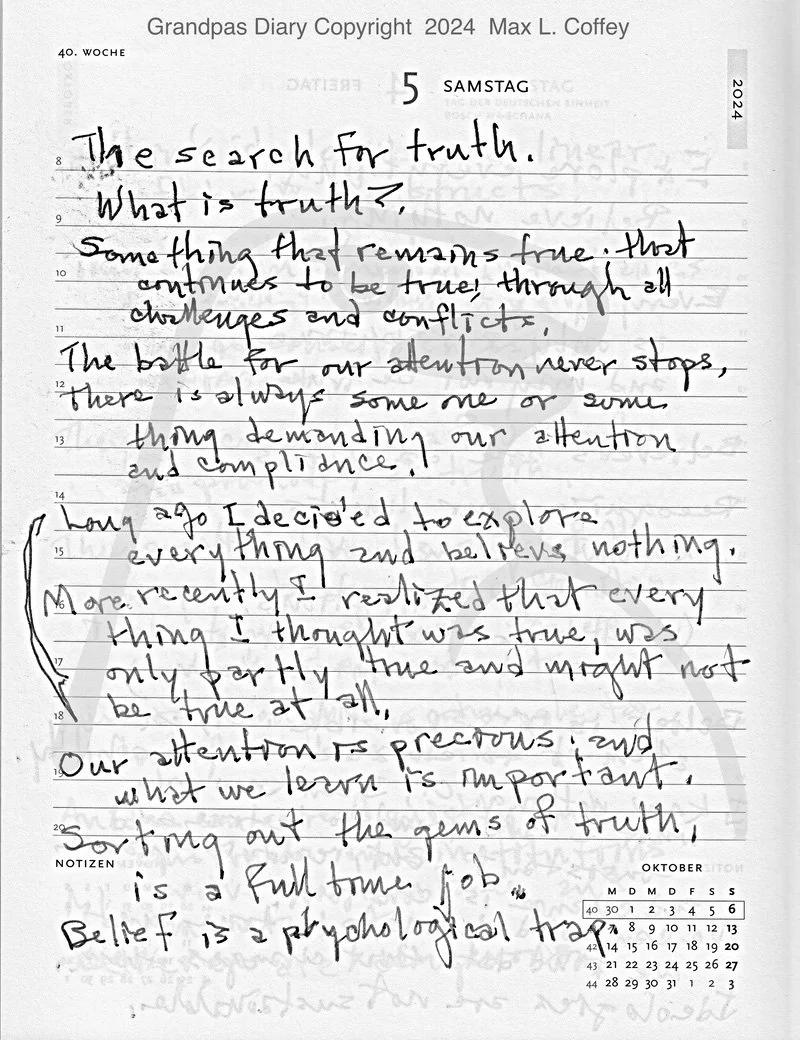 Grandpas Diary Copyright 2024 Max L. Coffey
40. WOCHE
5 SAMSTAG
2024
8 The search for truth.
What is truth?.
9
Something that remains true; that
10 continues to be true; through all
challenges and conflicts.
11
The battle for our attention never stops,
12 there is always some one or some
13 thing demanding our attention
and compliance.
14
Long ago I decided to explore
15 everything and believe nothing.
16 More recently I realized that every
thing I thought was true, was
17 only partly true and might not
18 be true at all.
Our attention is precious; and
19 what we learn is important.
20 Sorting out the gems of truth,
NOTIZEN
is a full time job.
Belief is a phychological trap.
OKTOBER
M D M D F S S
40 30 1 2 3 4 5 6
7 8 9 10 11 12 13
42 14 15 16 17 18 19 20
43 21 22 23 24 25 26 27
44 28 29 30 31 1 2 3
Ideologies are not sustainable.